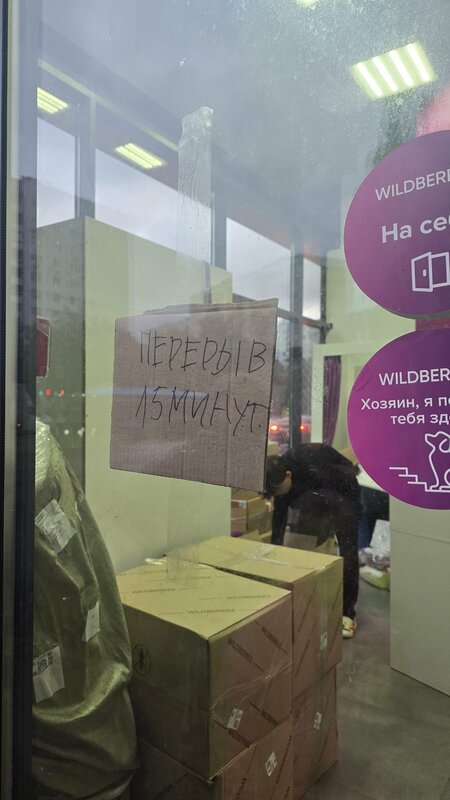 ПЕРЕРЫВ
15 МИНУТ.
WILDBER
На се
WILDBER
Хозяин, я п
тебя зд
WILDBERRIES
WILDBERRIES